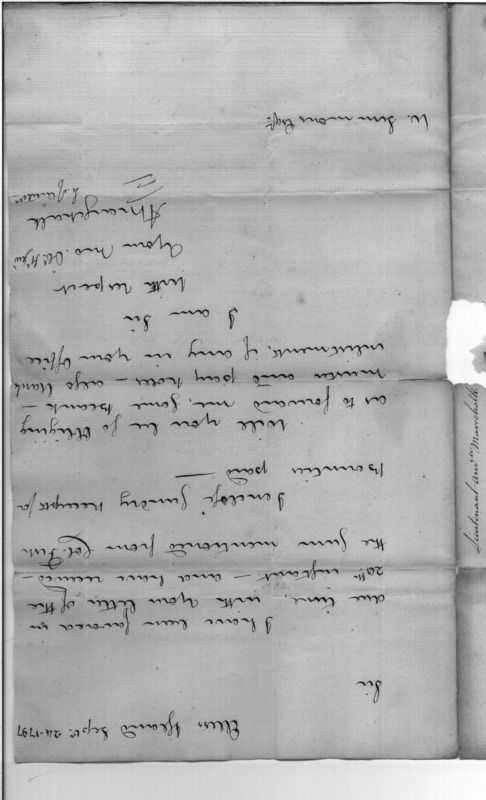 Ellis Island Sept. 24. 1797
Sir
I have been favored in
due time, with your letter of the
20th instant — and have received —
the sum mentioned from Col. Fish
I enclose sundry receipts for
Bounties paid —
Will you be so obliging
as to forward me, some blank —
muster and pay rolls — also blank
inlistments, if any in your office
I am Sir
with respect
Your mo. Ob. H
W. Simmons Esqr.
Lieutenant And.w Marschalk